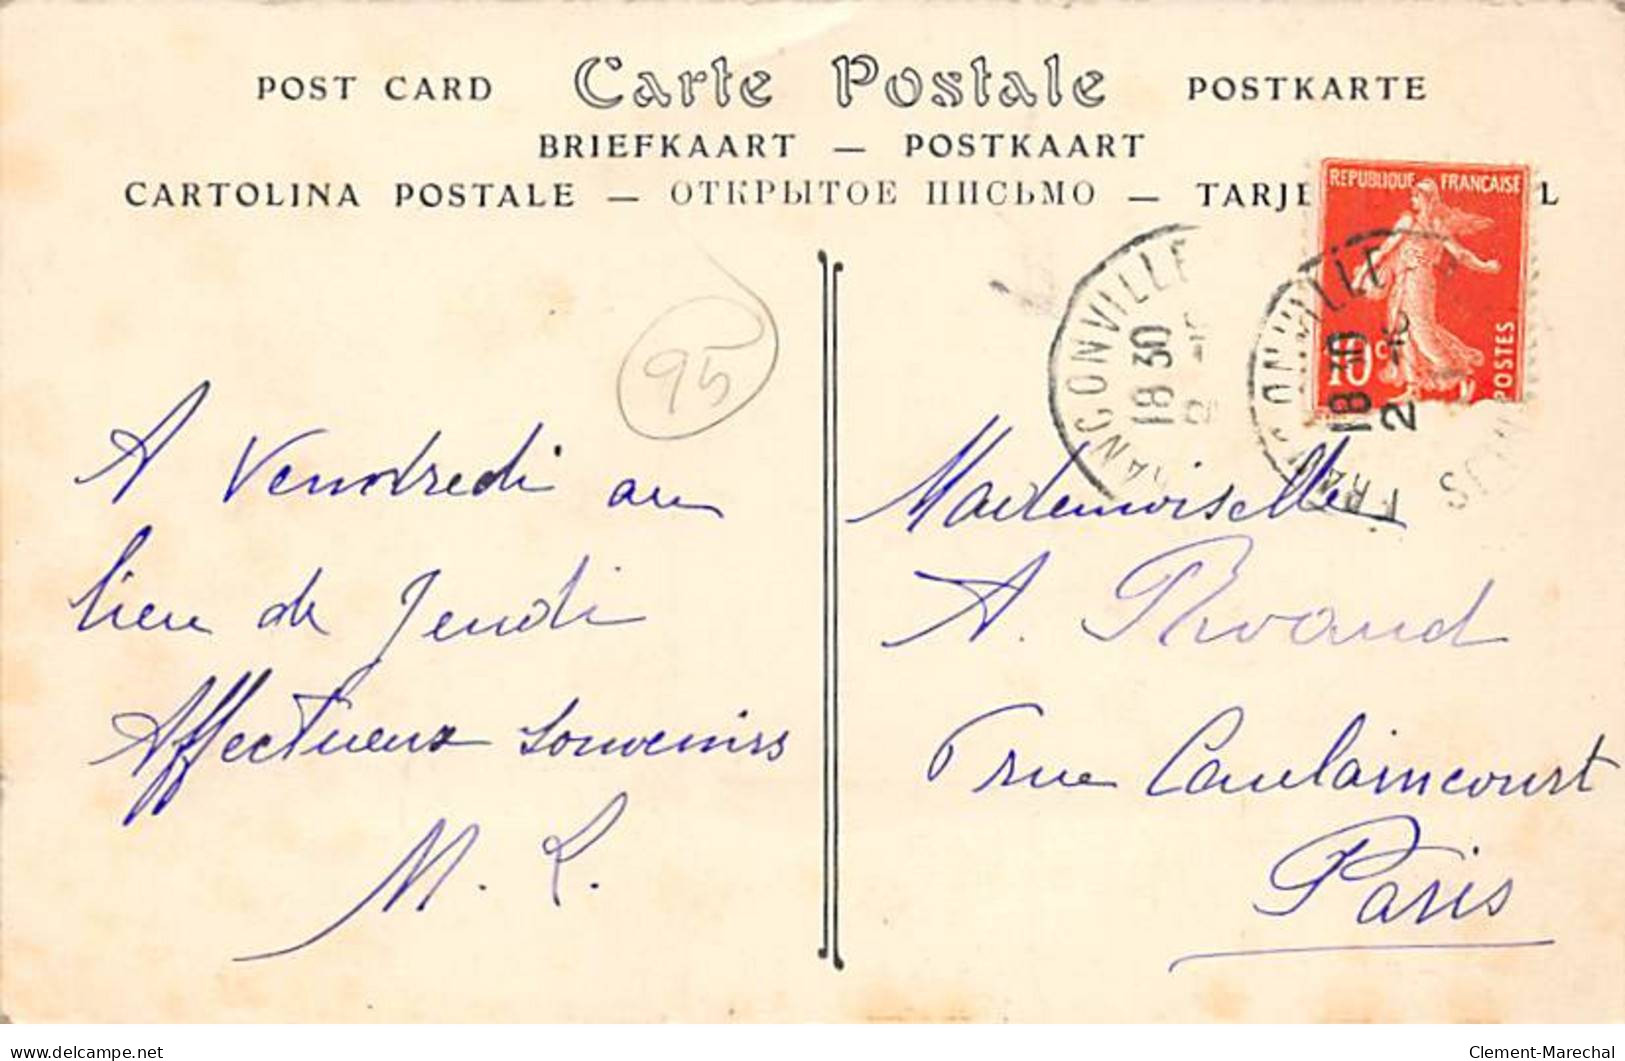 POST CARD Carte Postale POSTKARTE
BRIEFKAART — POSTKAART
CARTOLINA POSTALE — ОТКРЫТОЕ ПИСЬМО — TARJE L
REPUBLIQUE FRANÇAISE
10c POSTES
ANCONVILLE
18 30
ONVILLE
18 30
2
FRAN
95
A Vendredi au
lieu de Jeudi
Affectueux souvenirs
M. L.
Mademoiselle
A.
6 rue Caulaincourt
Paris
delcampe.net
Clement-Marechal